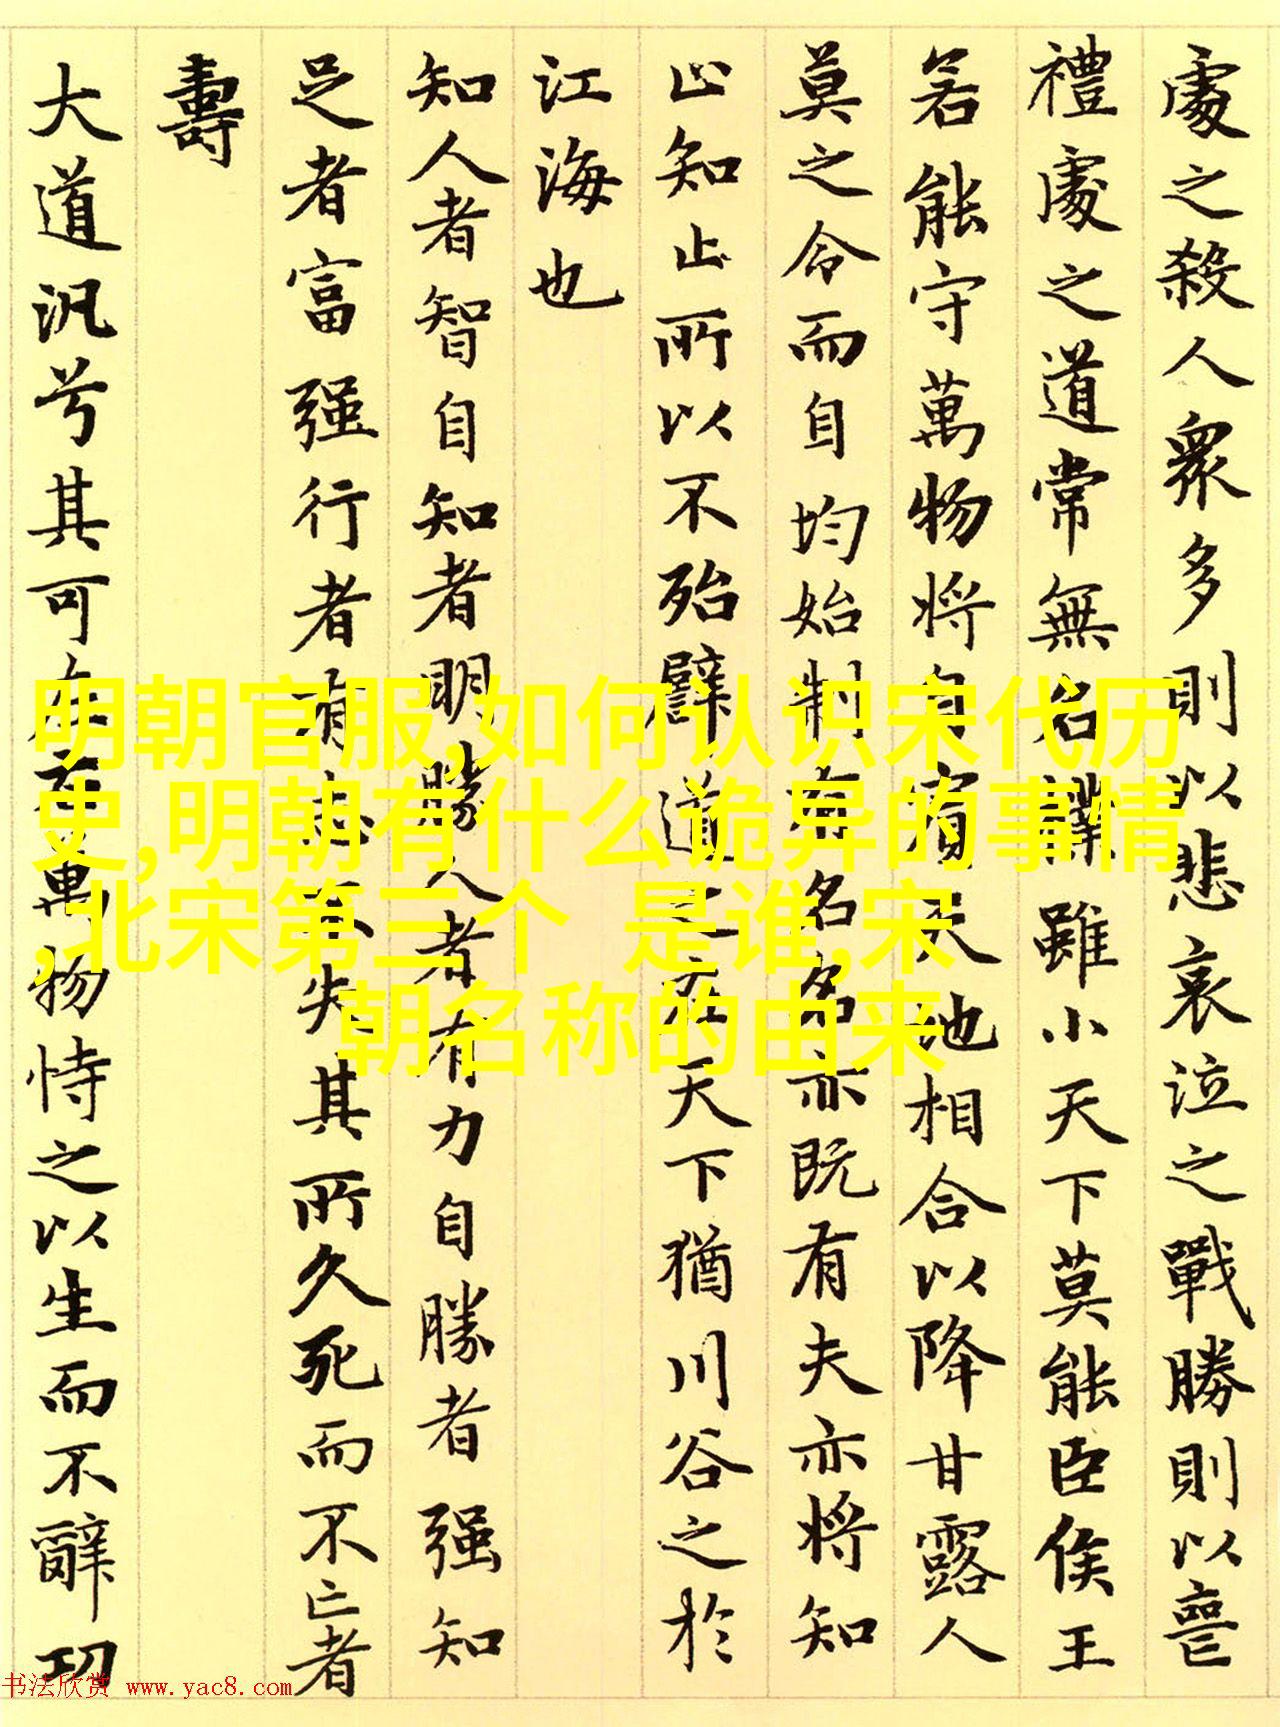 處之殺人衆多則以悲哀泣之戰勝則以喪
禮處之道常無名樸雖小天下莫能臣侯王
若能守萬物將自賓天地相合以降甘露人
莫之令而自均始制有名名亦既有夫亦將知
止知止所以不殆譬道之在天下猶川谷之於
江海也
知人者智自知者明勝人者有力自勝者强知
足者富强行者有志不失其所久死而不亡者
壽
大道汎兮其可左右萬物恃之以生而不辭功
明朝官服,如何认识宋代历
史,明朝有什么诡异的事情
,北宋第三个 是谁,宋
朝名称的由来
书法欣赏 www.yac8.com